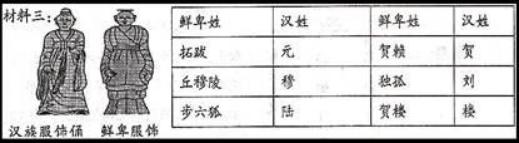 材料三：
汉族服饰俑 鲜卑服饰
鲜卑姓 汉姓 鲜卑姓 汉姓
拓跋 元 贺赖 贺
丘穆陵 穆 独孤 刘
步六孤 陆 贺楼 楼